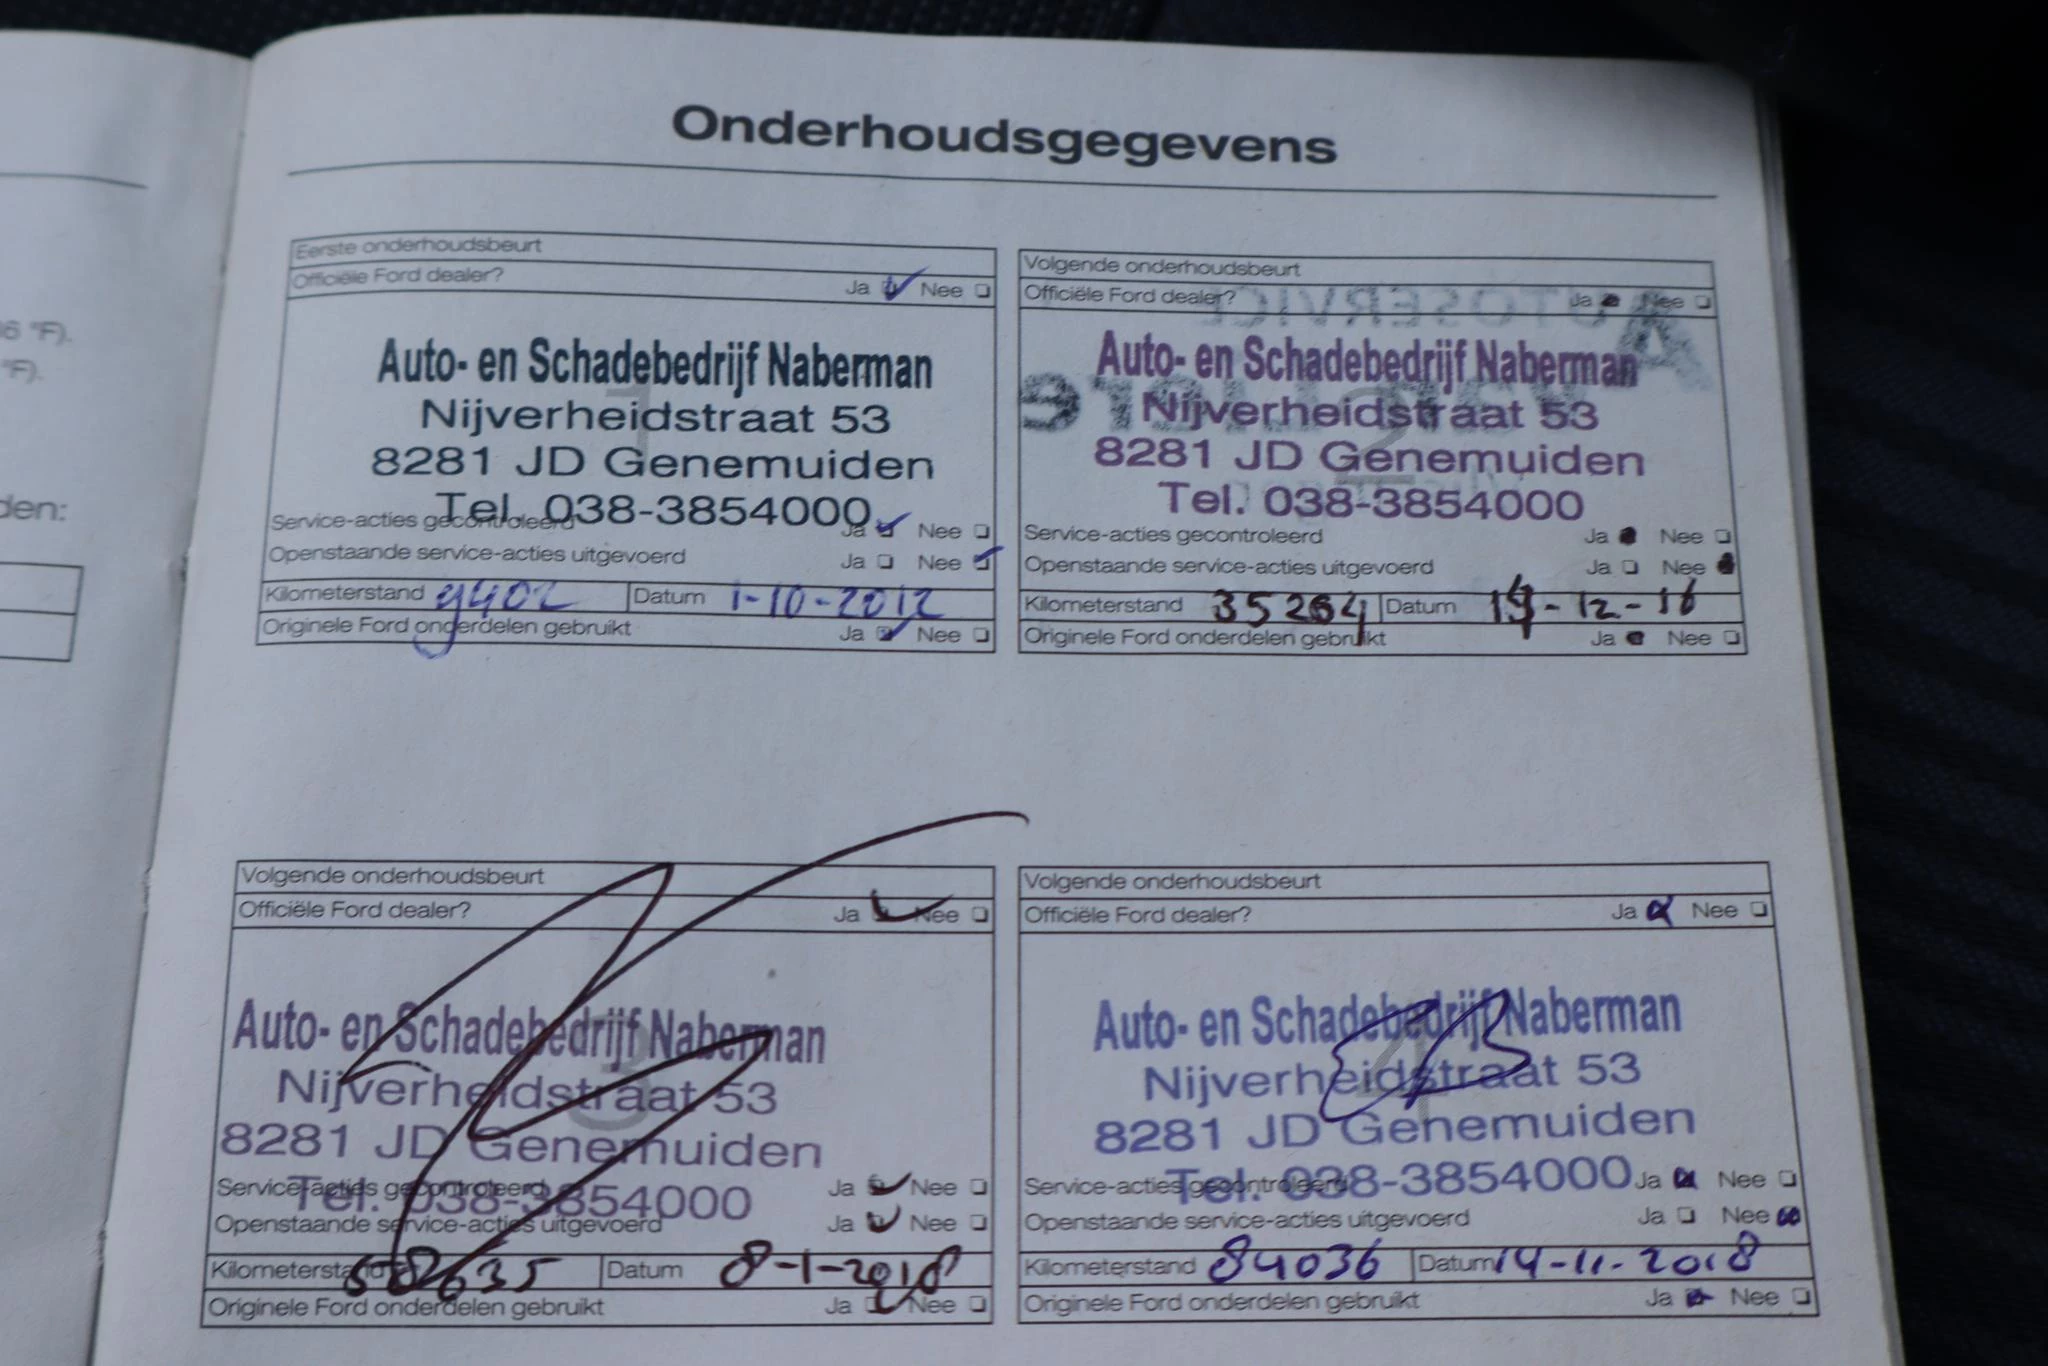 6 °F).
°F).
den:
Onderhoudsgegevens
Eerste onderhoudsbeurt
Officiële Ford dealer? Ja Nee
Auto- en Schadebedrijf Naberman
Nijverheidstraat 53
8281 JD Genemuiden
Tel. 038-3854000
Service-acties gecontroleerd Ja Nee
Openstaande service-acties uitgevoerd Ja Nee
Kilometerstand 9402 Datum 1-10-2012
Originele Ford onderdelen gebruikt Ja Nee
Volgende onderhoudsbeurt
Officiële Ford dealer? Ja Nee
AUTOSERVICE
Auto- en Schadebedrijf Naberman
Nijverheidstraat 53
8281 JD Genemuiden
Tel. 038-3854000
Service-acties gecontroleerd Ja Nee
Openstaande service-acties uitgevoerd Ja Nee
Kilometerstand 35264 Datum -12-16
Originele Ford onderdelen gebruikt Ja Nee
Volgende onderhoudsbeurt
Officiële Ford dealer? Ja Nee
3
Auto- en Schadebedrijf Naberman
Nijverheidstraat 53
8281 JD Genemuiden
Tel. 038-3854000
Service-acties gecontroleerd Ja Nee
Openstaande service-acties uitgevoerd Ja Nee
Kilometerstand 58635 Datum 8-1-2018
Originele Ford onderdelen gebruikt Ja Nee
Volgende onderhoudsbeurt
Officiële Ford dealer? Ja Nee
4
Auto- en Schadebedrijf Naberman
Nijverheidstraat 53
8281 JD Genemuiden
Tel. 038-3854000
Service-acties gecontroleerd Ja Nee
Openstaande service-acties uitgevoerd Ja Nee
Kilometerstand 84036 Datum 14-11-2018
Originele Ford onderdelen gebruikt Ja Nee